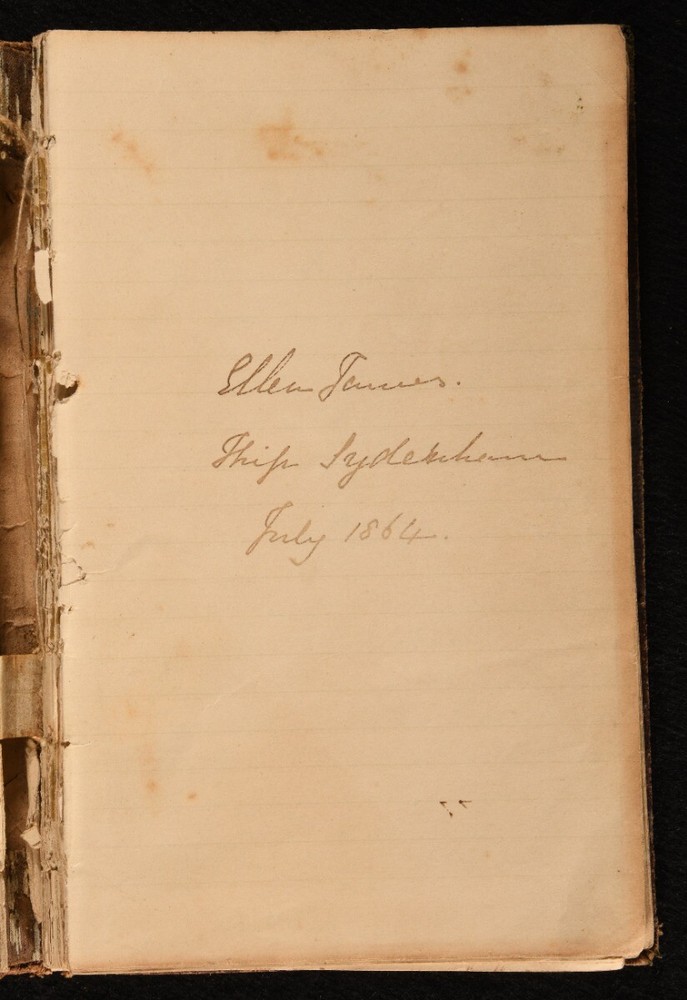 Ellen James.
Ship Sydenham
July 1864.